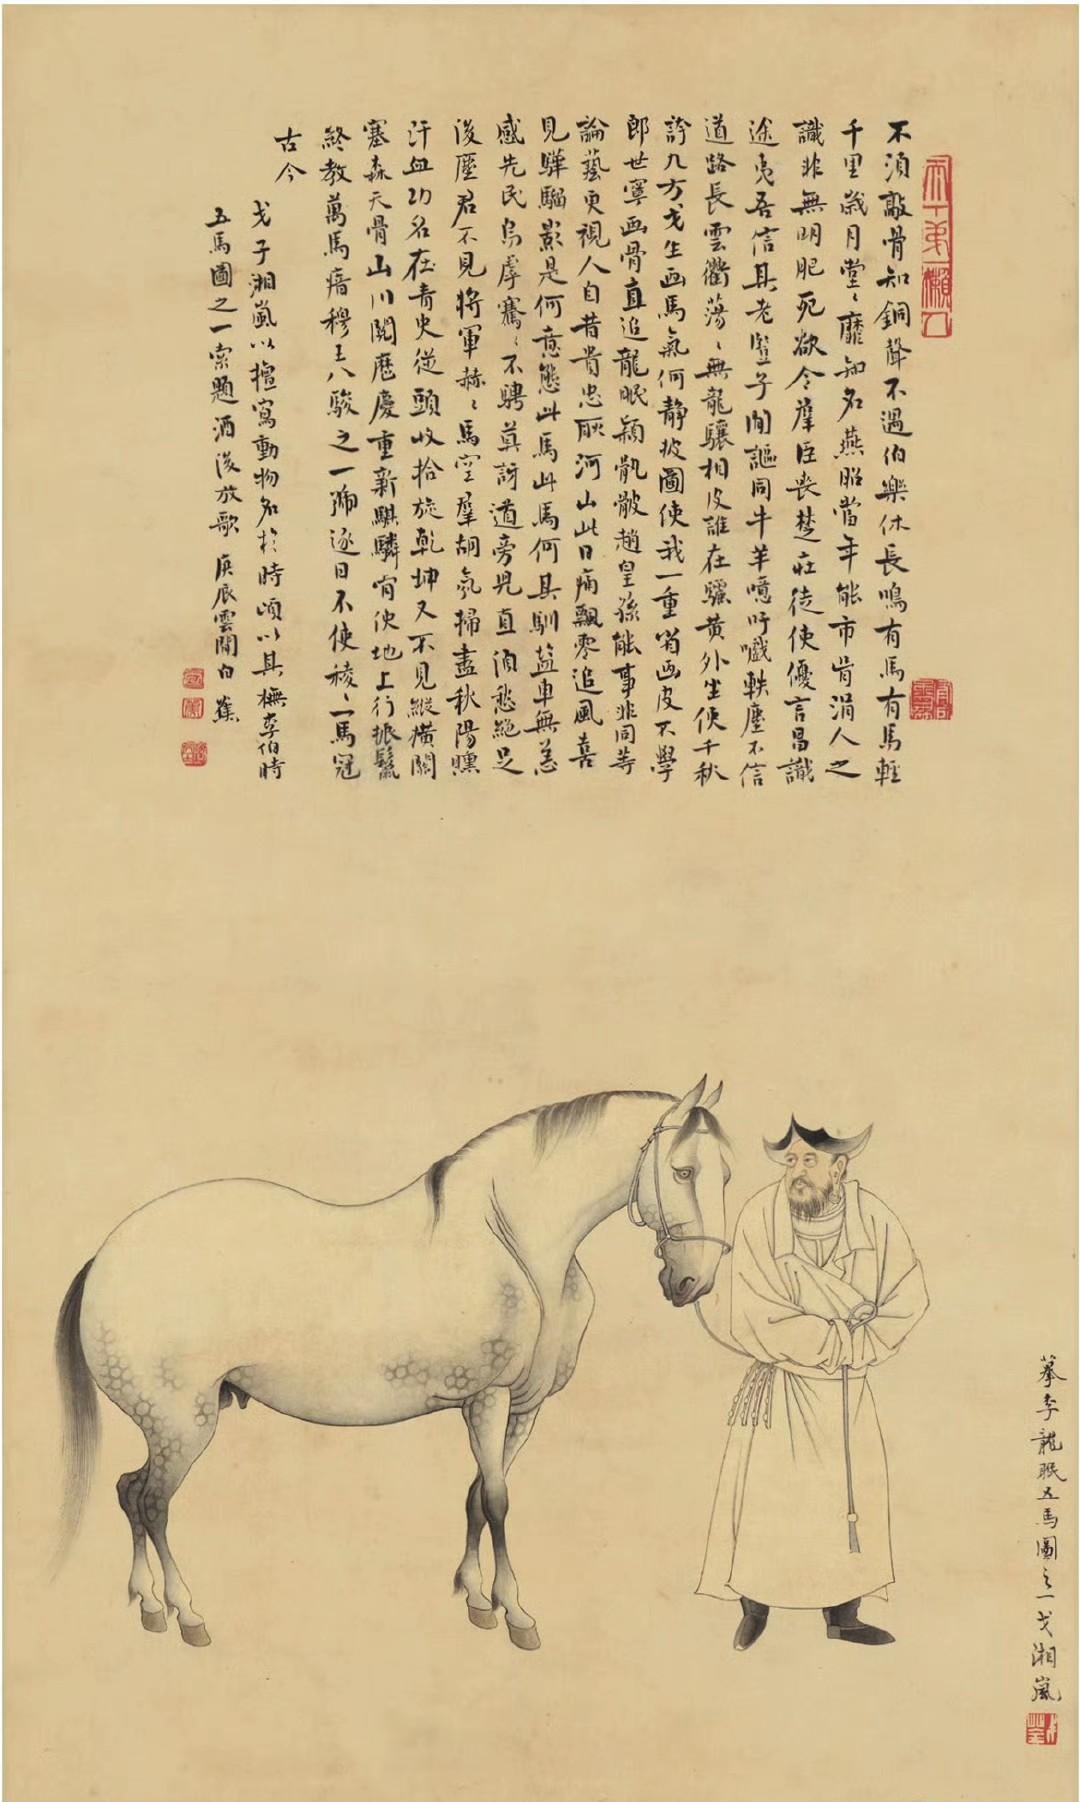 不須敲骨知銅聲不遇伯樂休長鳴有馬有馬輕
千里歲月堂々靡知名燕昭當年能市骨涓人之
識非無明肥死欲令羣臣喪楚莊徒使優言昌識
途夷吾信其老豎子閒謳同牛羊噫吁嚱軼塵不信
道路長雲衢蕩々無龍驤相皮誰在驪黄外坐使千秋
誇九方戈生画馬氣何静披圖使我一重省画皮不學
郎世寧画骨直追龍眠穎骯髒趙皇孫能事非同等
論藝更視人自昔貴忠耿河山此日痛飄零追風喜
見驊騮影是何意態此馬此馬何其馴盐車無恙
感先民烏虖騫々不騁莫訝道旁見直須愁絕足
後塵君不見将軍赫々馬空羣胡氛掃盡秋陽曛
汗血功名在青史從頭收拾旋乾坤又不見縱橫關
塞森天骨山川閱歷慶重新騏驎肯使地上行振鬣
終教萬馬瘖穆王八駿之一逐日不使稜々一馬冠
古今
戈子湘嵐以擅寫動物名於時頃以其橅李伯時
五馬圖之一索題酒後放歌 庚辰雲閒白蕉
摹李龍眠五馬圖之一戈湘嵐